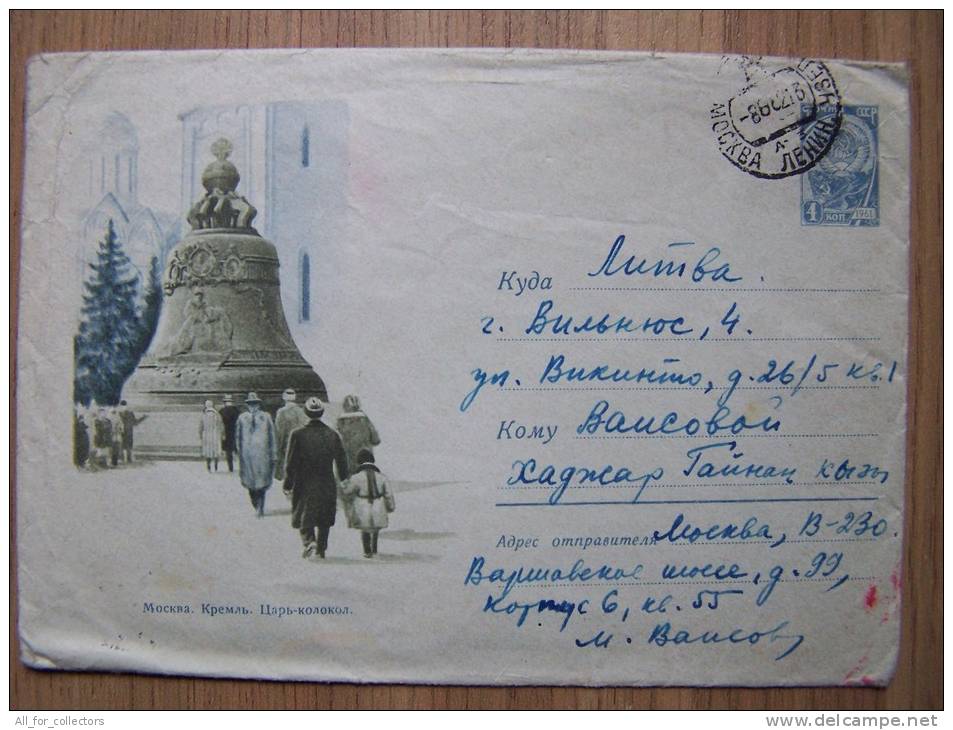 МОСКВА ЛЕНИН
ПОЧТА СССР
4 КОП 1961
Куда Литва.
г. Вильнюс, 4.
ул. Викинто, д. 26/5 кв. 1
Кому Ваисовой
Хаджар Гайнан кызы
Адрес отправителя Москва, В-230.
Варшавское шоссе, д. 99,
корпус 6, кв. 55
М. Ваисов
Москва. Кремль. Царь-колокол.
All_for_collectors
www.delcampe.net